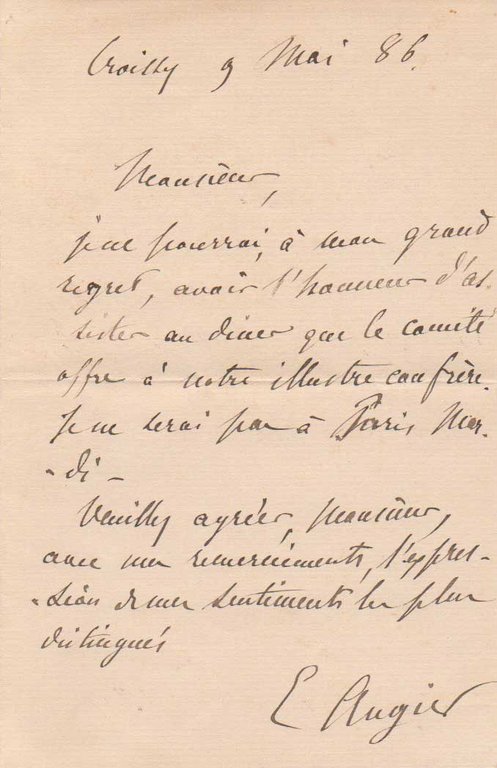 Croissy 9 Mai 86.
Monsieur,
je ne pourrai, à mon grand
regret, avoir l'honneur d'as-
sister au diner que le comité
offre à notre illustre confrère.
Je ne serai pas à Paris Mar-
-di -
Veuillez agréer, Monsieur,
avec mes remerciments, l'expres-
-sion de mes sentiments les plus
distingués
E Augier